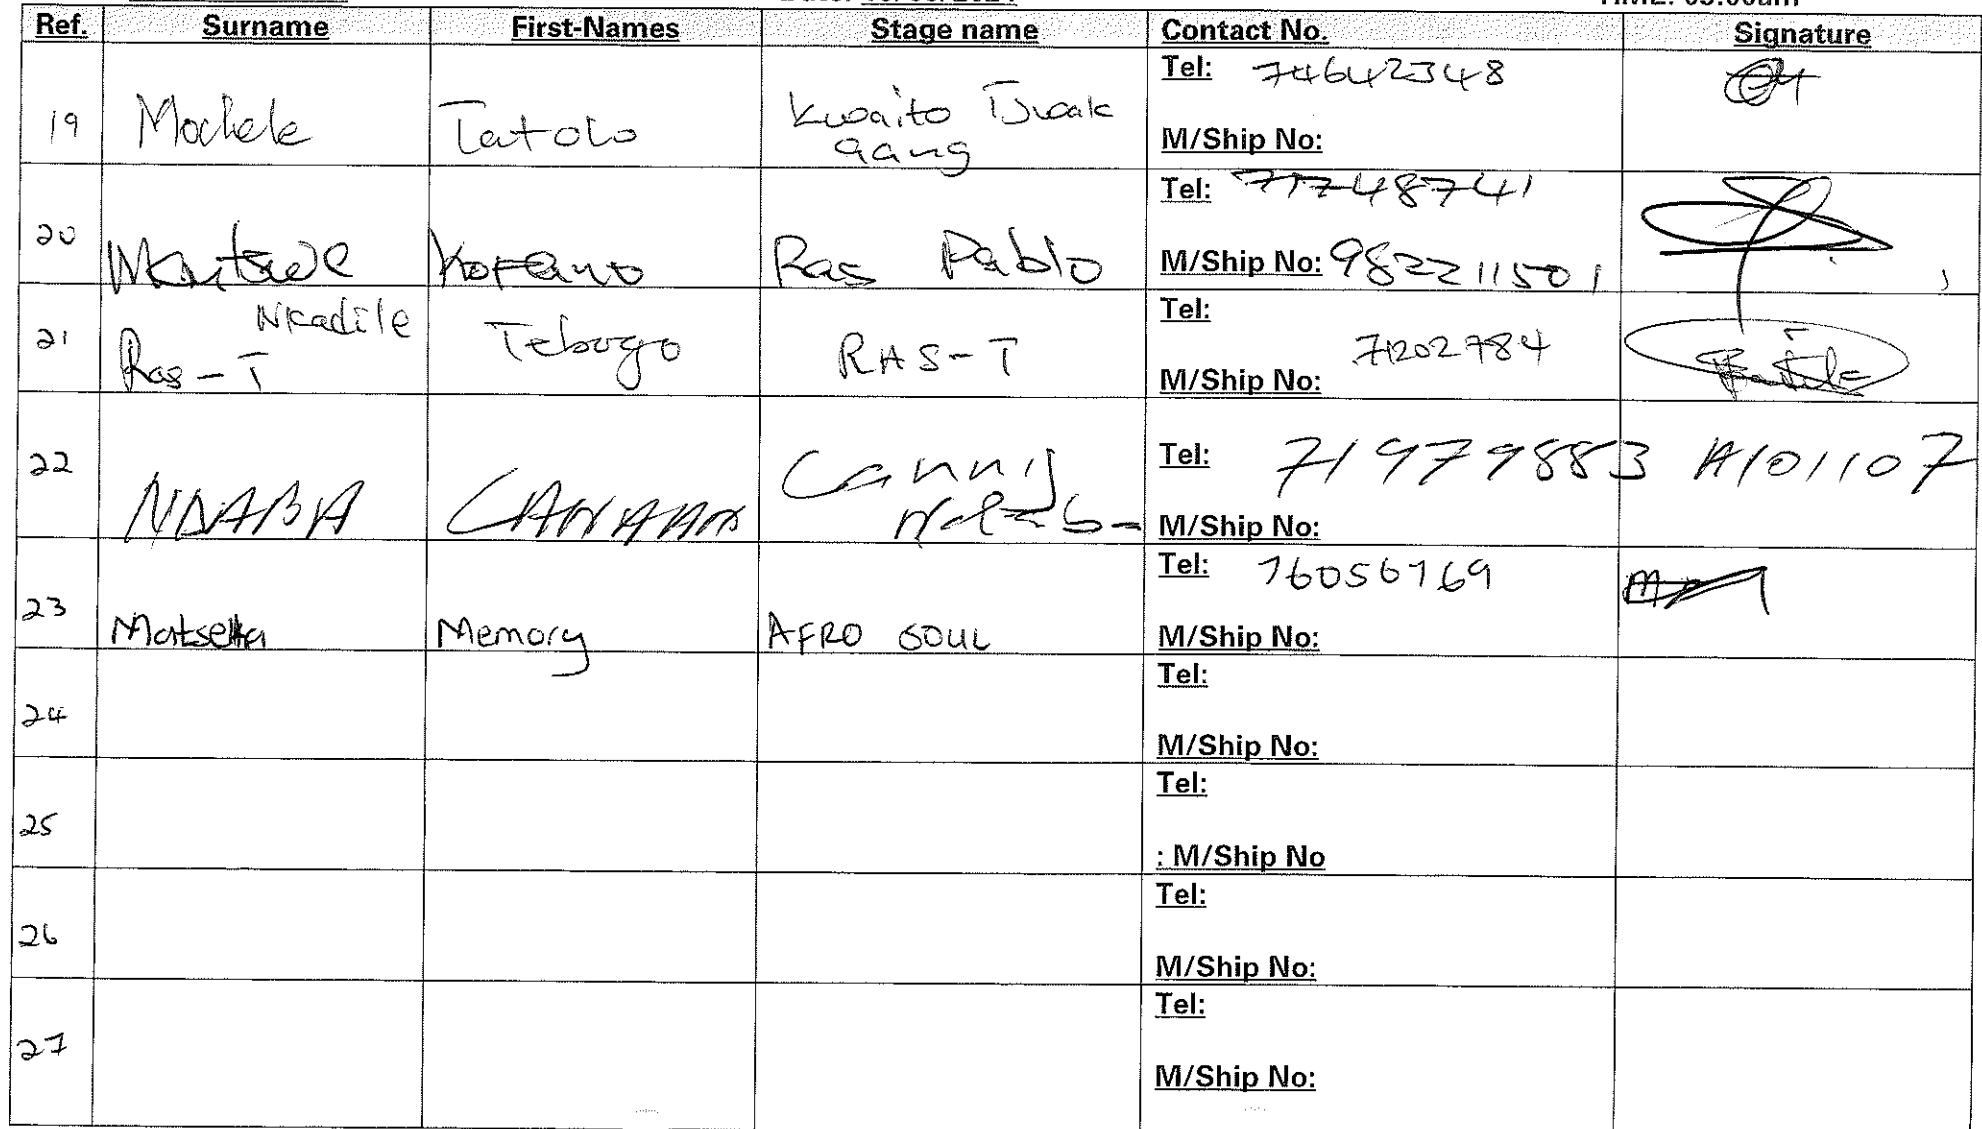 Ref. Surname First-Names Stage name Contact No. Signature
19 Mochele Tatolo Kwaito Tswak Tel: 74642348
gang M/Ship No:
20 Ras Pablo Tel: 71748741
M/Ship No: 982211501
21 Nkadile Tebogo RAS-T Tel:
Ras-T 71202784
M/Ship No:
22 NNABA CANAAN Canni Tel: 71979883 A101107
M/Ship No:
23 Matsetta Memory AFRO SOUL Tel: 76056769
M/Ship No:
24 Tel:
M/Ship No:
25 Tel:
: M/Ship No
26 Tel:
M/Ship No:
27 Tel:
M/Ship No: